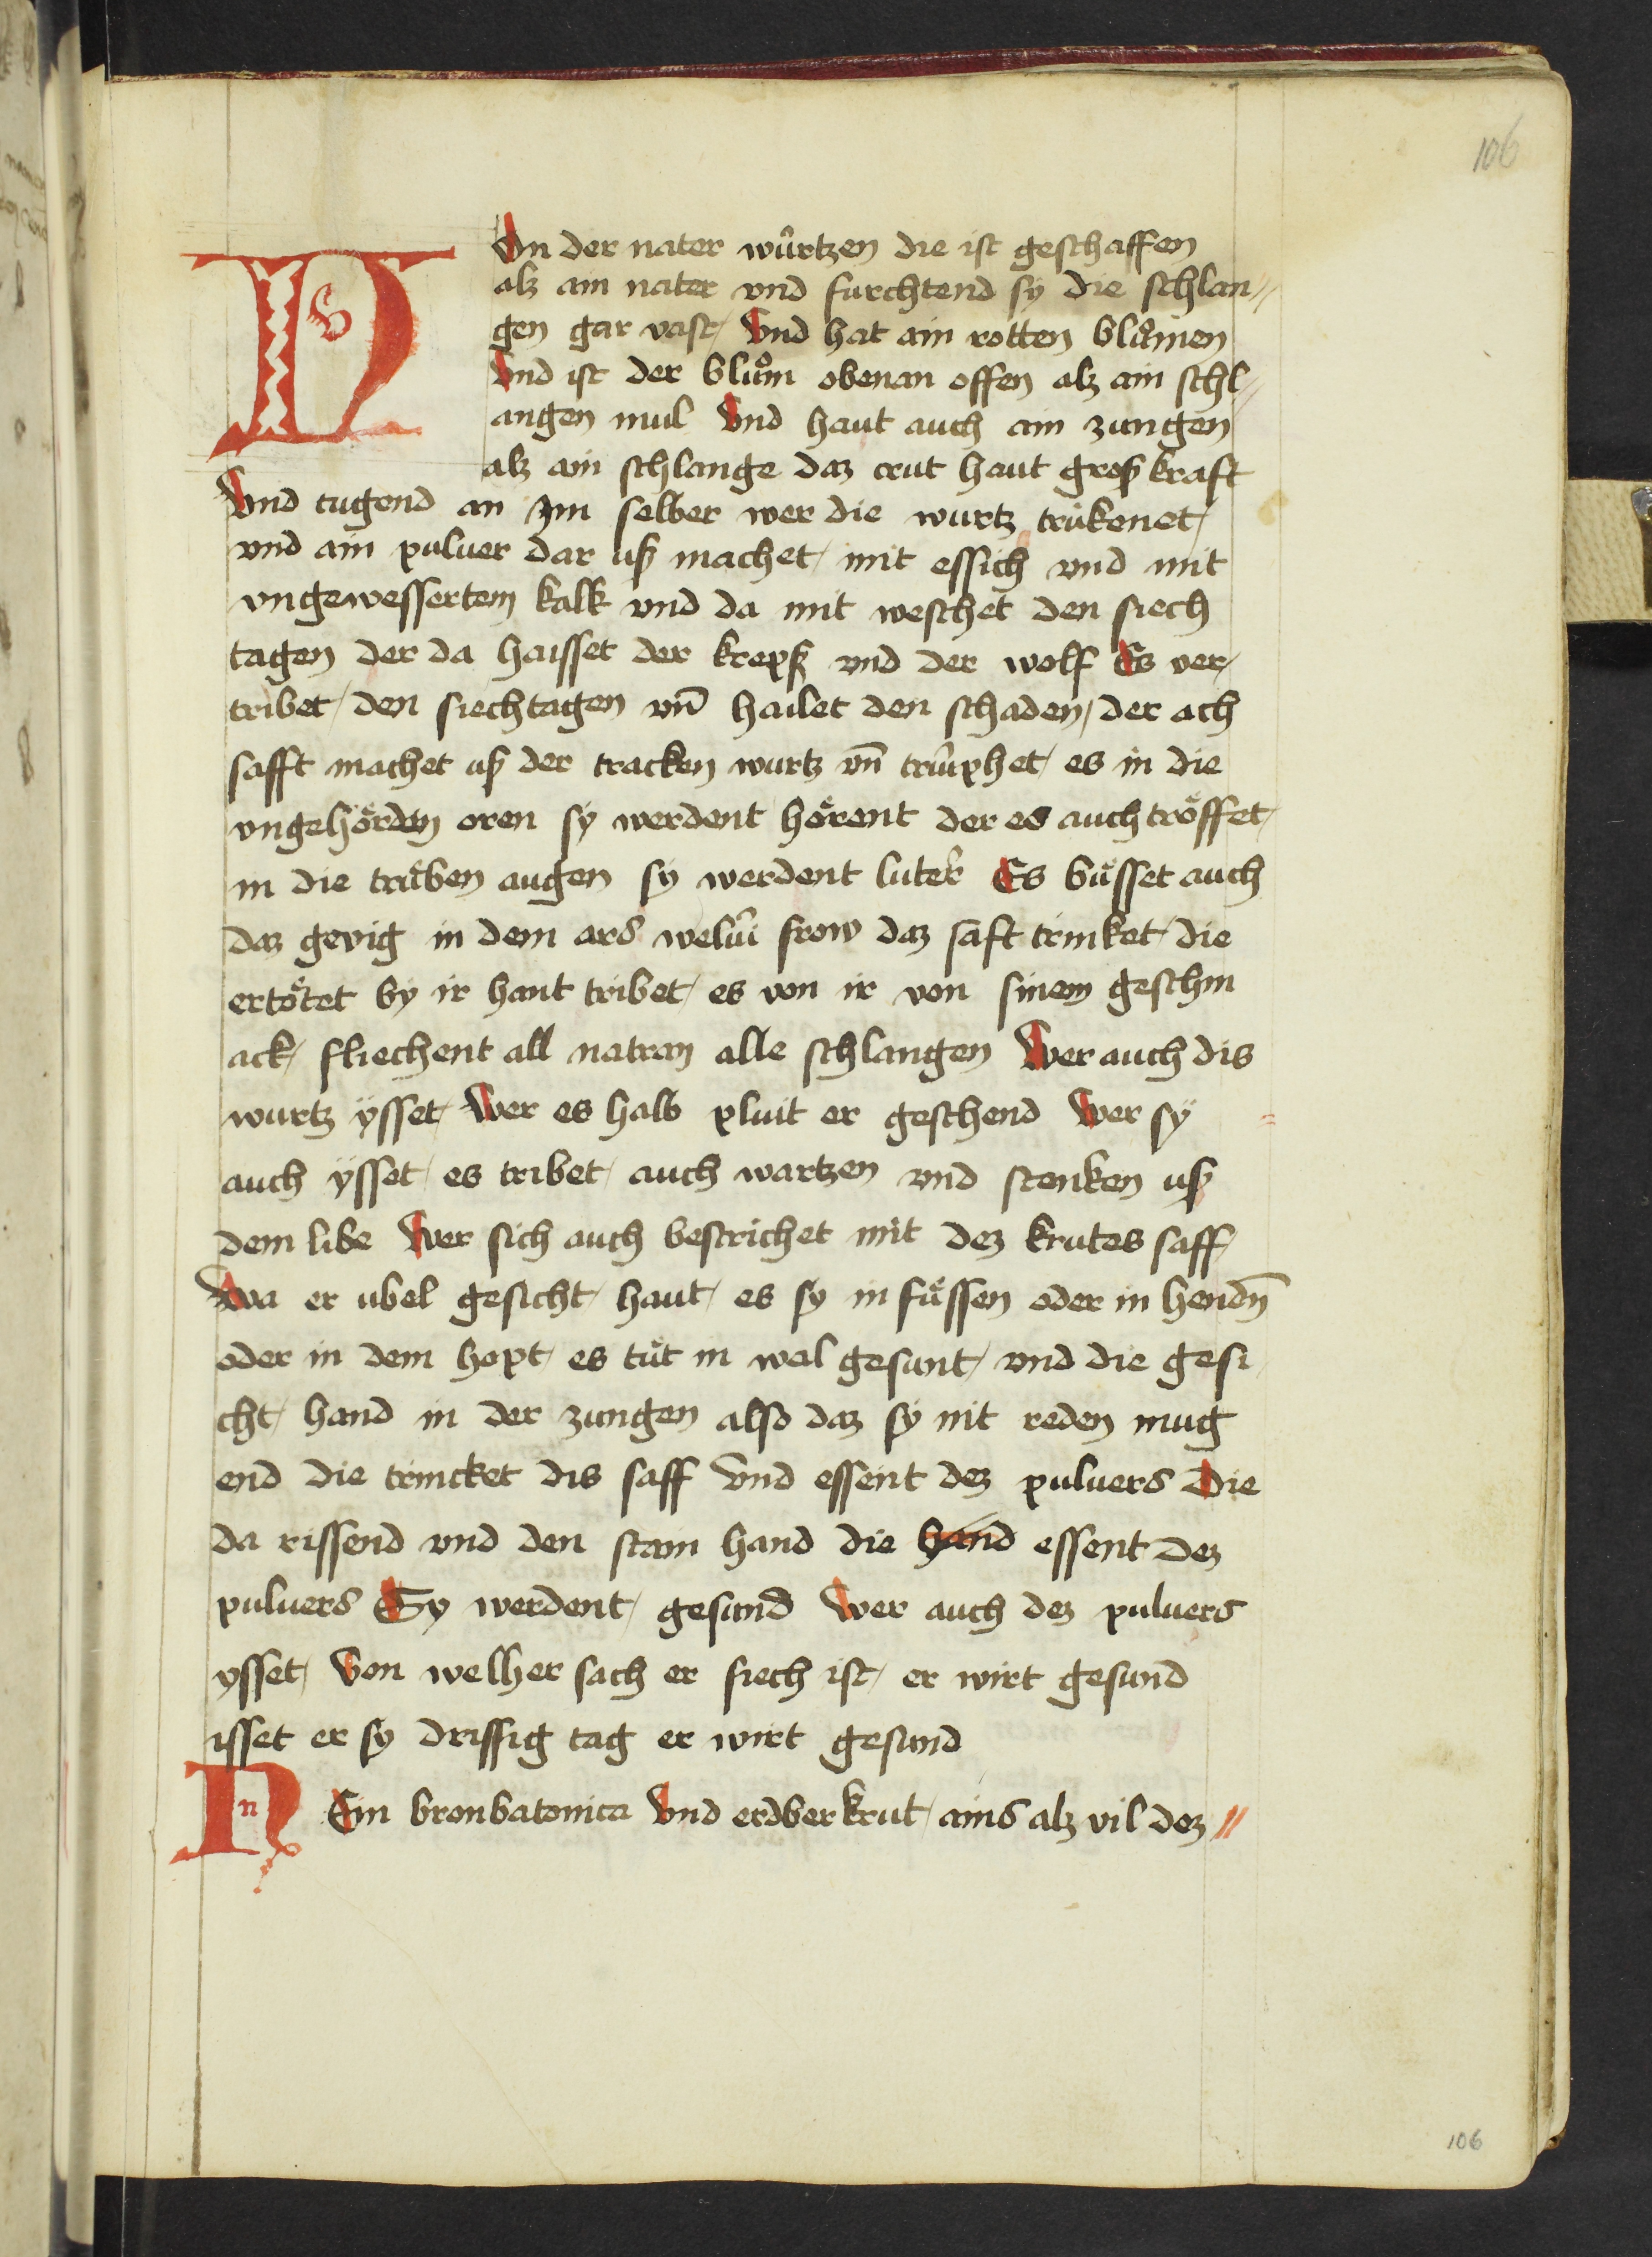 106
V On der nater wûrtzen die ist geschaffen
alz ain nater vnd furchtend sy die schlan//
gen gar vast/ Vnd hat ain rotten blůmen
Vnd ist der blům obenan offen alz ain schl//
angen mul Vnd haut auch ain zungen
alz ain schlange daz crut haut groß kraft
Vnd tugend an Jm selber wer die wurtz trükenet/
vnd ain puluer dar uß machet/ mit essich vnd mit
vngewessertem kalk vnd da mit weschet den siech
tagen der da haisset der krepß vnd der wolf Es ver/
tribet/ den siechtagen vn̄ hailet den schaden/ der ach
safft machet uß der tracken wurtz vn̄ trûphet/ es in die
vngehörden oren sy werdent hörent der es auch tröffet/
in die trüben augen sy werdent luter Es büsset auch
daz gevig in dem ars welûi frow daz saft trinket/ die
ertötet by ir hant tribet/ es von ir von sinem geschm
ack/ fliechent all natran alle schlangen Wer auch dis
wurtz ÿsset/ Wer es halb pluit er geschend Wer sÿ
auch ÿsset/ es tribet/ auch wartzen vnd stenken uß
dem libe Wer sich auch bestrichet mit dez krutes saff/
Wa er ubel gesicht/ haut/ es sy in füssen oder in hendn̄
oder in dem hopt/ es tůt in wol gesunt/ vnd die gesi
cht/ hand in der zungen also daz sy nit reden mug
end die trincket dis saff Vnd essent dez puluers Die
da rissend vnd den stam hand die hand essent dez
puluers Sy werdent/ gesund Wer auch dez puluers
ysset/ Von welher sach er siech ist/ er wirt gesund
isset er sy drissig tag er wirt gesund
N Ein bronbatonica Vnd erdberkrut/ ains alz vil dez //
106